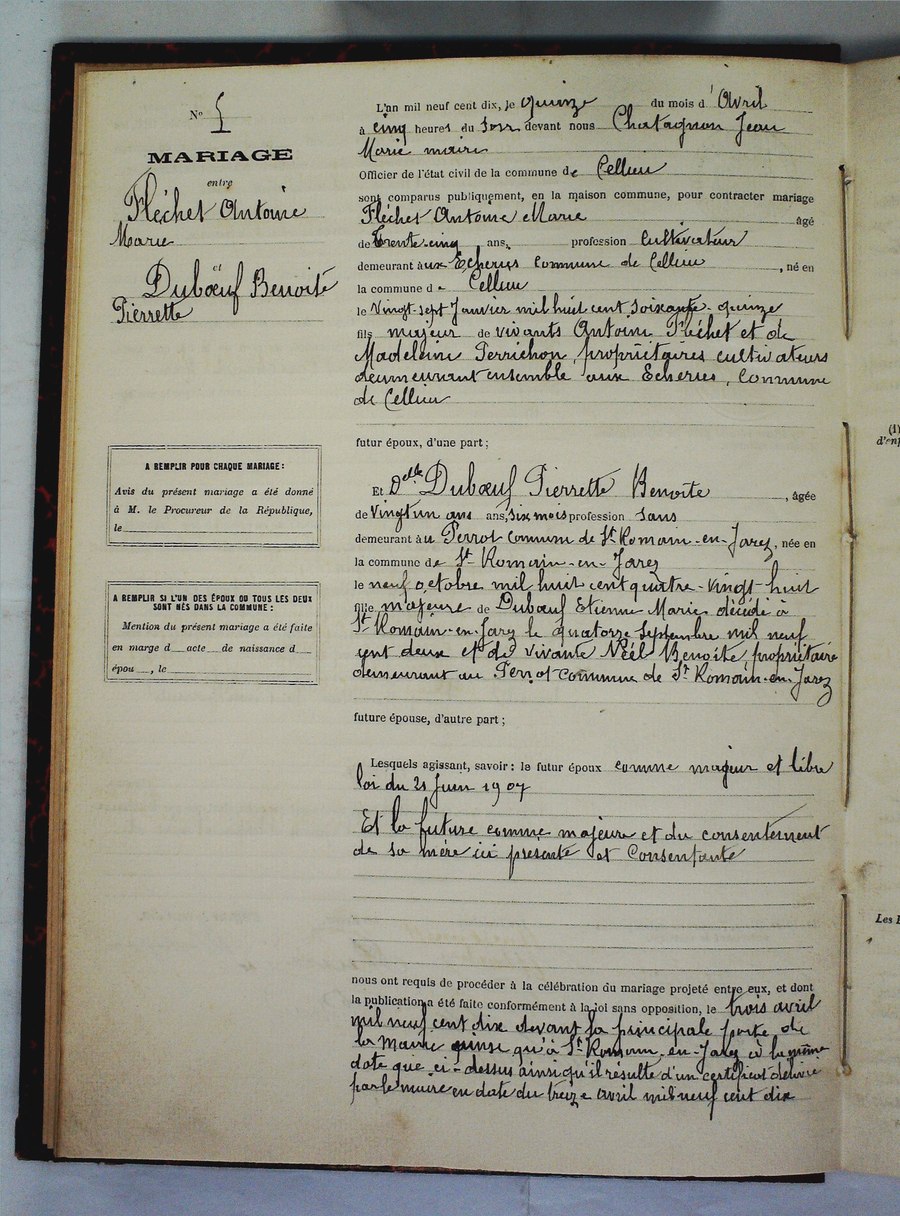 Nº 5
MARIAGE
entre
Fléchet Antoine
Marie
et
Dubœuf Benoite
Pierrette
A REMPLIR POUR CHAQUE MARIAGE :
Avis du présent mariage a été donné
à M. le Procureur de la République,
le
A REMPLIR SI L'UN DES ÉPOUX OU TOUS LES DEUX
SONT NÉS DANS LA COMMUNE :
Mention du présent mariage a été faite
en marge d acte de naissance d
épou , le
L'an mil neuf cent dix, le quinze du mois d'Avril
à cinq heures du soir devant nous Chatagnon Jean
Marie maire
Officier de l'état civil de la commune de Cellieu
sont comparus publiquement, en la maison commune, pour contracter mariage
Fléchet Antoine Marie âgé
de trente-cinq ans, profession Cultivateur
demeurant aux Echeries Commune de Cellieu, né en
la commune de Cellieu
le Vingt-sept Janvier mil huit cent soixante-quinze
fils majeur de vivants Antoine Fléchet et de
Madeleine Perrichon, propriétaires cultivateurs
demeurant ensemble aux Echeries, Commune
de Cellieu
futur époux, d'une part ;
Et Delle Dubœuf Pierrette Benoite, âgée
de Vingt un ans ans, six mois profession sans
demeurant au Perrot commune de St Romain-en-Jarez, née en
la commune de St-Romain-en-Jarez
le neuf octobre mil huit cent quatre-vingt-huit
fille majeure de Dubœuf Etienne Marie décédé à
St Romain-en-Jarez le quatorze Septembre mil neuf
cent deux et de vivante Néel Benoite, propriétaire
demeurant au Perrot commune de St Romain-en-Jarez
future épouse, d'autre part ;
Lesquels agissant, savoir : le futur époux comme majeur et libre
loi du 21 Juin 1907
Et la future comme majeure et du consentement
de sa mère ici présente et Consentante
nous ont requis de procéder à la célébration du mariage projeté entre eux, et dont
la publication a été faite conformément à la loi sans opposition, le trois avril
mil neuf cent dix devant la principale porte de
la Mairie ainsi qu'à St Romain-en-Jarez à la même
date que ci-dessus ainsi qu'il résulte d'un certificat délivré
par le maire en date du treize avril mil neuf cent dix
(1)
d'en
Les